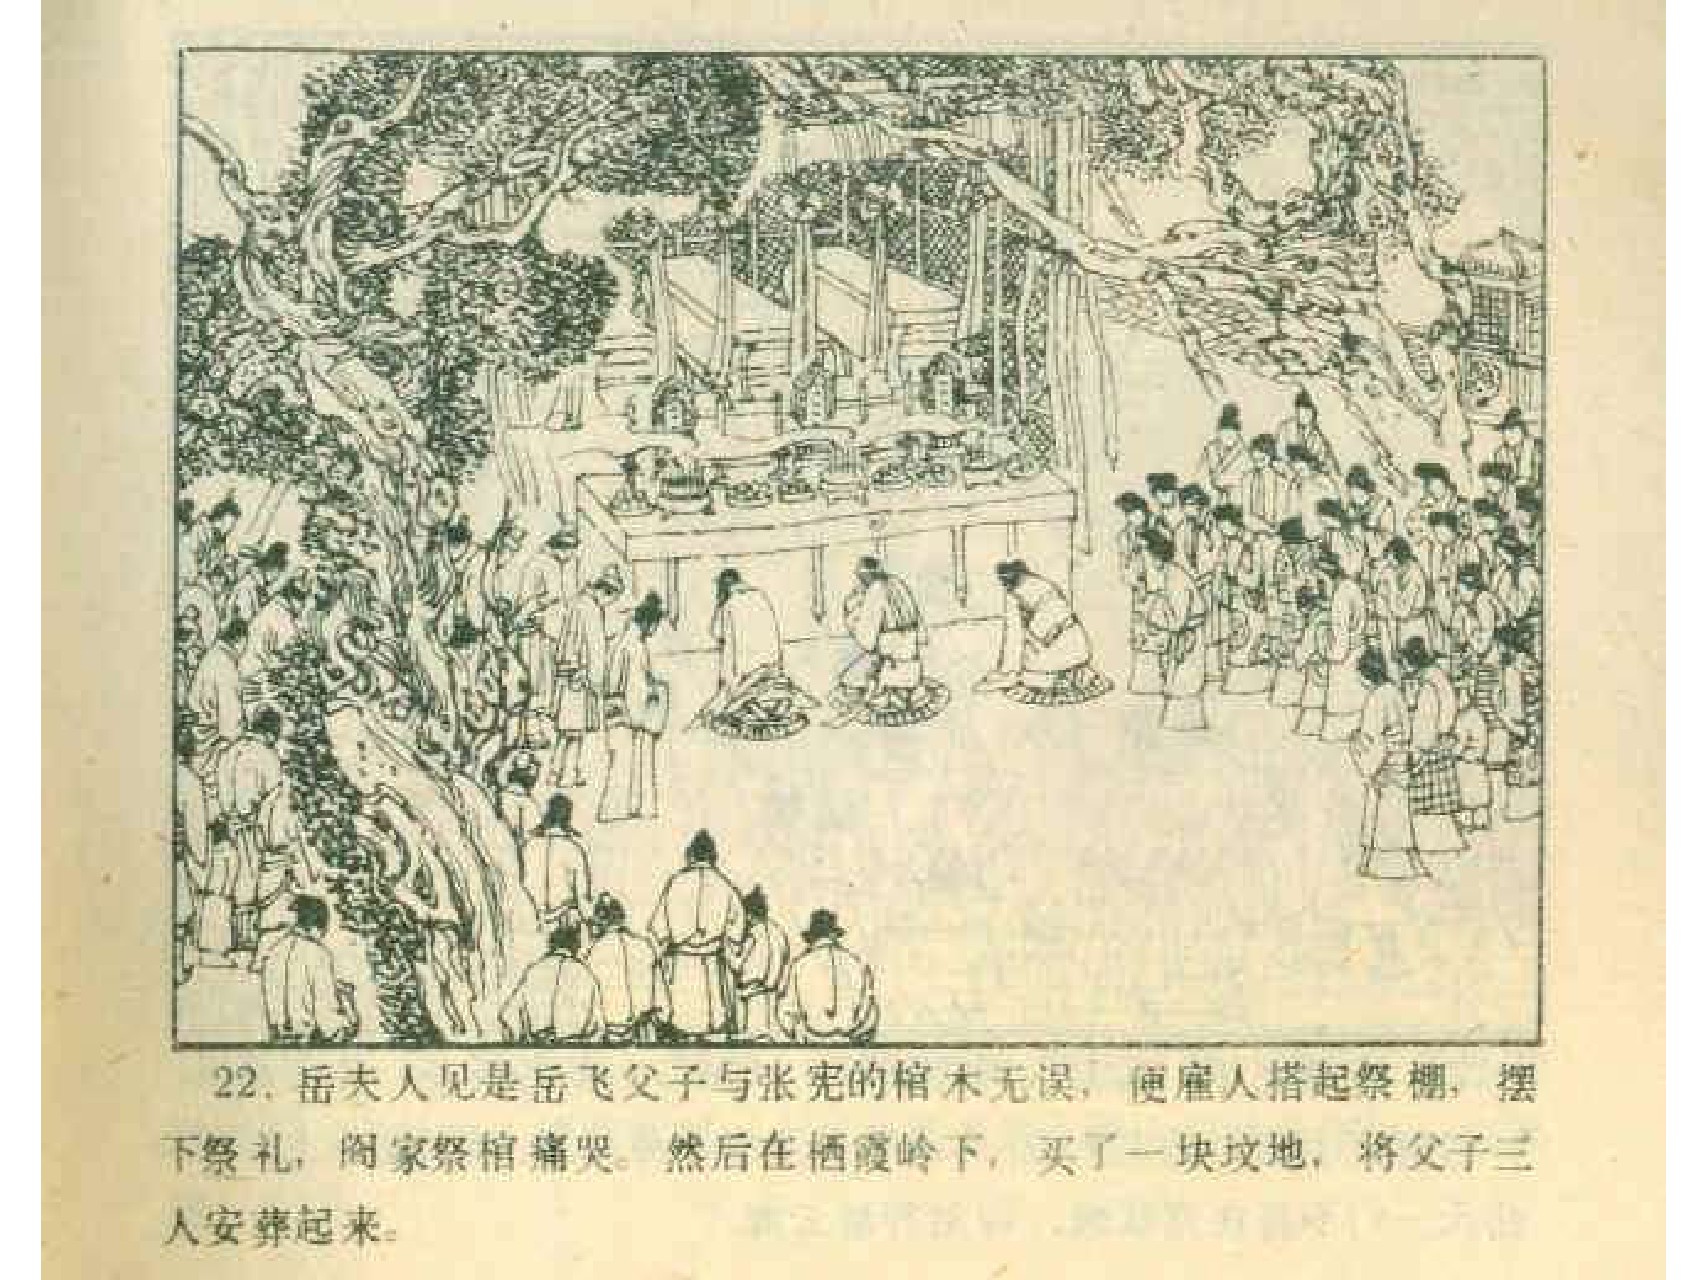 22. 岳夫人见是岳飞父子与张宪的棺木无误，便雇人搭起祭棚，摆
下祭礼，阎家祭棺痛哭。然后在栖霞岭下，买了一块坟地，将父子三
人安葬起来。